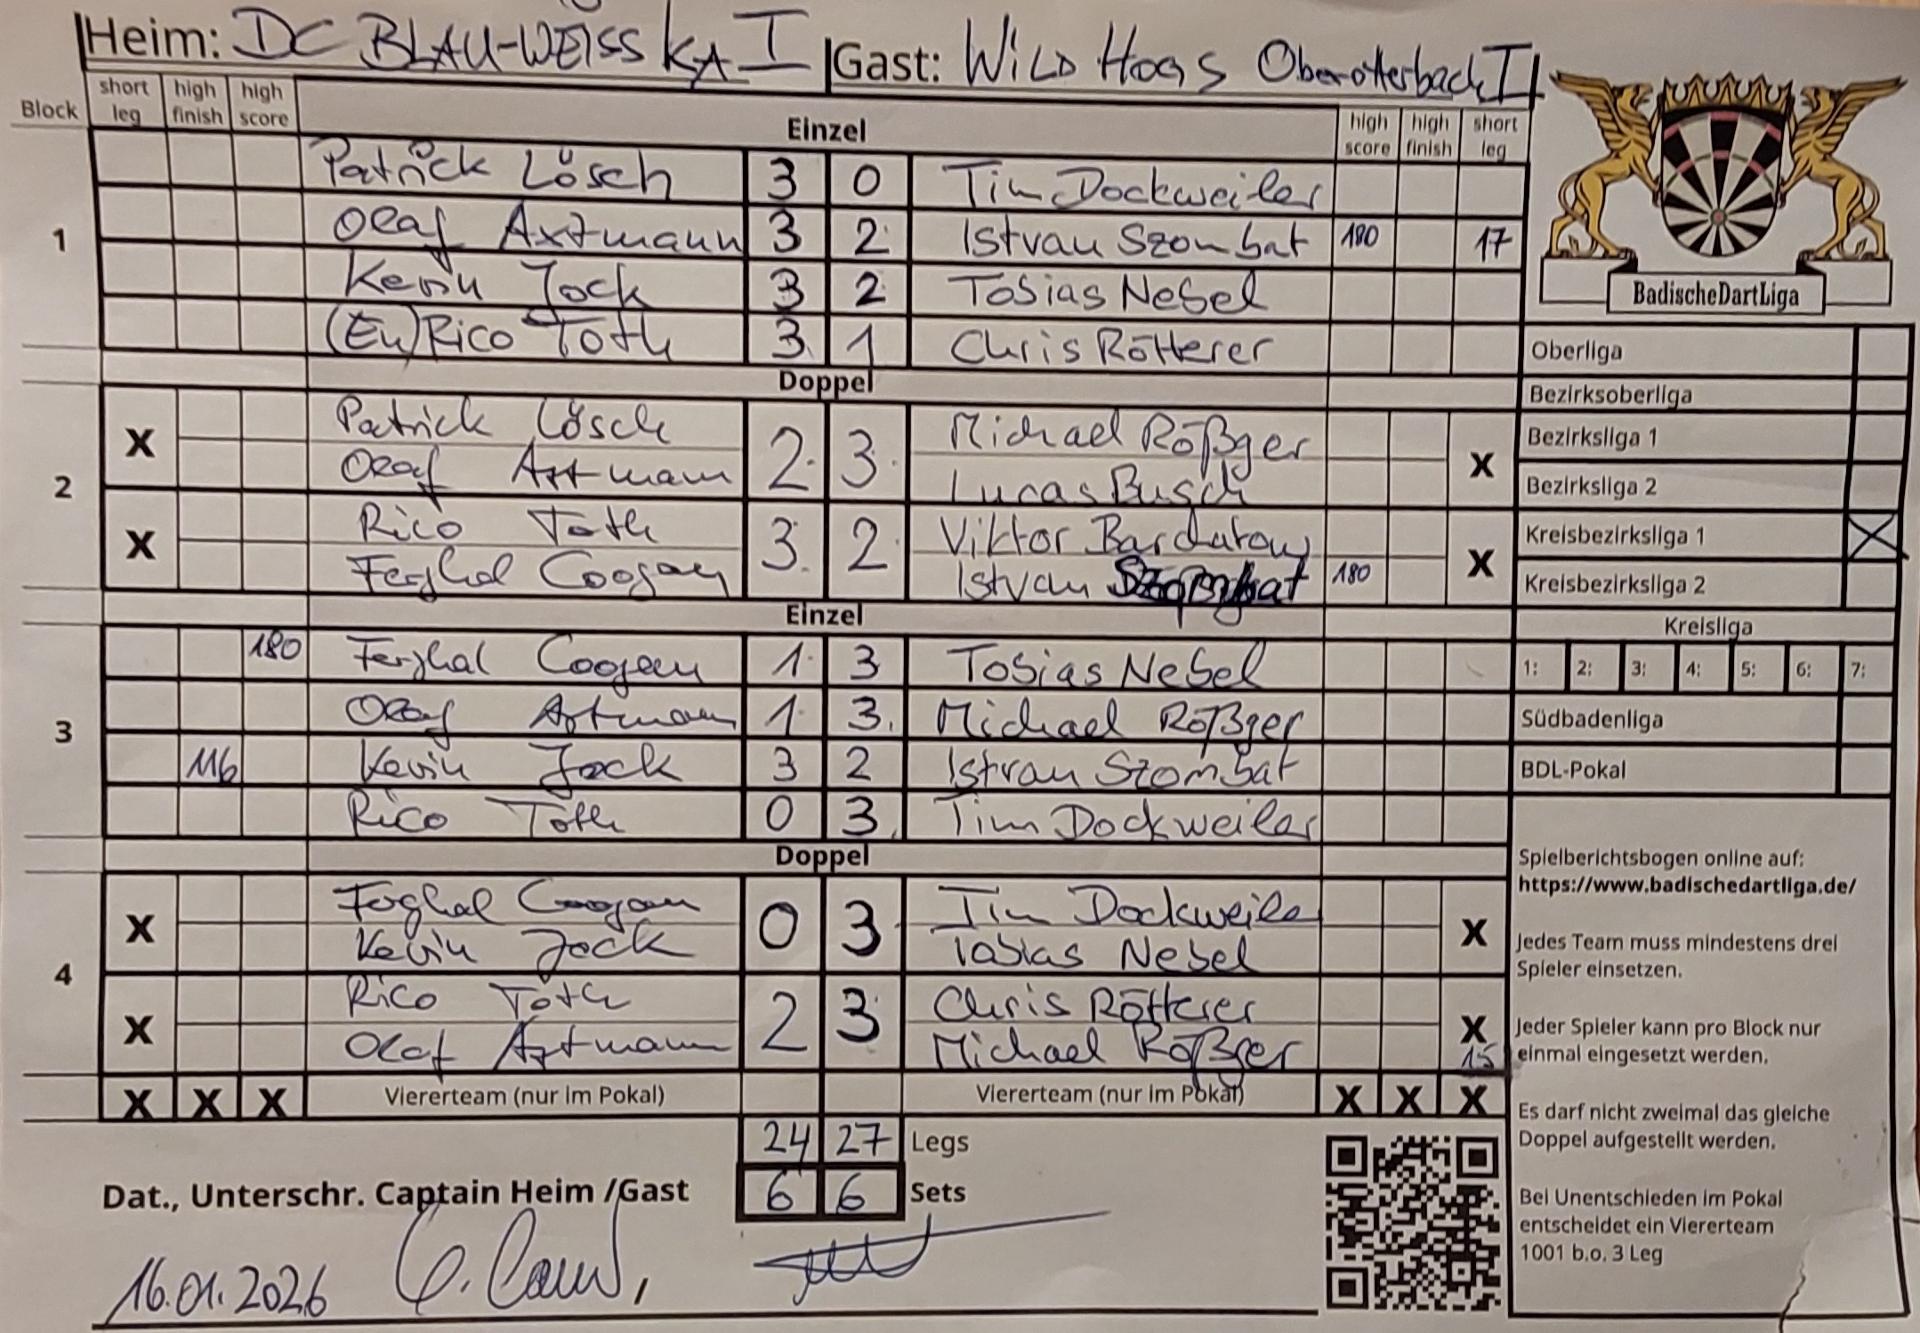 Heim: DC BLAU-WEISS KA I Gast: Wild Hogs Oberotterbach II
Block short leg high finish high score Einzel high score high finish short leg
1
Patrick Lösch 3 0 Tim Dockweiler
Olaf Axtmann 3 2 Istvan Szombat 180 17
Kevin Jock 3 2 Tobias Nebel
(En)Rico Toth 3 1 Chris Rötterer
Doppel
2
X Patrick Lösch 2 3 Michael Rößger X
Olaf Axtmann Lucas Busch
X Rico Toth 3 2 Viktor X
Ferghal Coogan Istvan Szombat 180
Einzel
3
180 Ferghal Coogan 1 3 Tobias Nebel
Olaf Axtmann 1 3 Michael Rößger
116 Kevin Jock 3 2 Istvan Szombat
Rico Toth 0 3 Tim Dockweiler
Doppel
4
X Ferghal Coogan 0 3 Tim Dockweiler X
Kevin Jock Tobias Nebel
X Rico Toth 2 3 Chris Rötterer X
Olaf Axtmann Michael Rößger 15
X X X Viererteam (nur im Pokal) Viererteam (nur im Pokal) X X X
24 27 Legs
6 6 Sets
Dat., Unterschr. Captain Heim /Gast
16.01.2026
BadischeDartLiga
Oberliga
Bezirksoberliga
Bezirksliga 1
Bezirksliga 2
Kreisbezirksliga 1 X
Kreisbezirksliga 2
Kreisliga
1: 2: 3: 4: 5: 6: 7:
Südbadenliga
BDL-Pokal
Spielberichtsbogen online auf:
https://www.badischedartliga.de/
Jedes Team muss mindestens drei
Spieler einsetzen.
Jeder Spieler kann pro Block nur
einmal eingesetzt werden.
Es darf nicht zweimal das gleiche
Doppel aufgestellt werden.
Bei Unentschieden im Pokal
entscheidet ein Viererteam
1001 b.o. 3 Leg